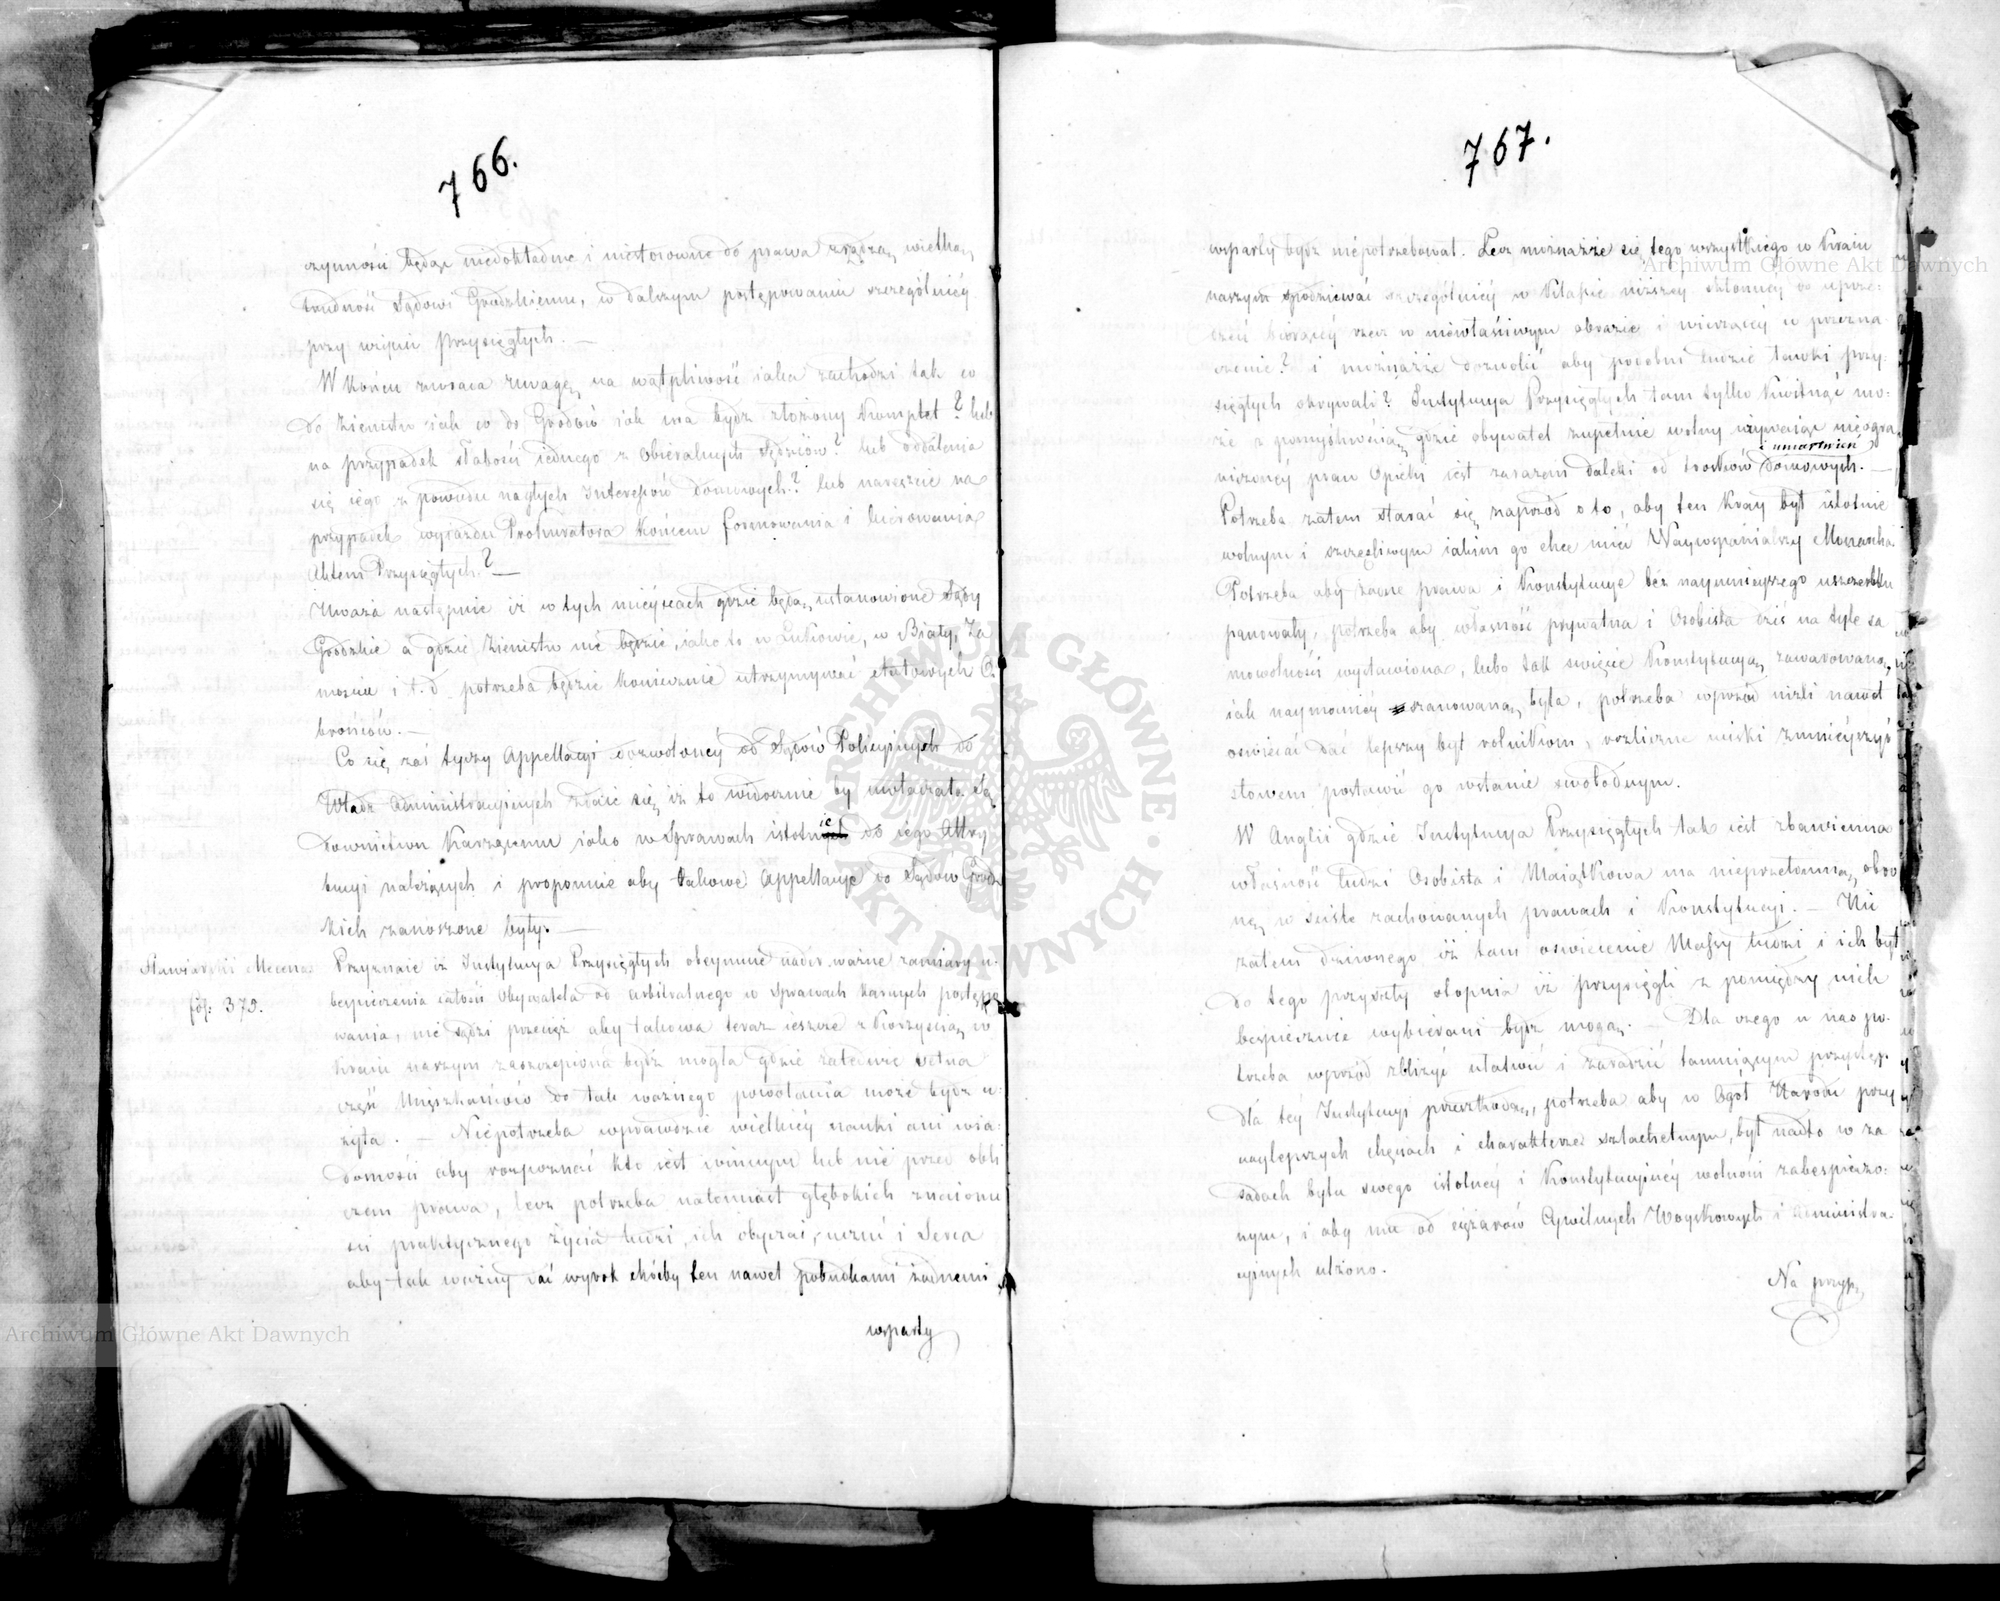 766.
czynności będąc niedokładne i niestosowne do prawa zrządzą wielką
trudność Sądowi Grodzkiemu, w dalszym postępowaniu szczególniéy
przy wzięciu Przysięgłych. —
W końcu zwraca uwagę na wątpliwość iaka zachodzi tak co
do Ziemstw iak co do Grodów iak ma bydź złożony Komplet? lub
na przypadek słabości iednego z obieralnych Sędziów? lub oddalenia
się iego z powodu nagłych Interesów domowych? lub nareszcie na
przypadek wyiazdu Prokuratora końcem formowania i kierowania
Aktem Przysięgłych? —
Uważa następnie iż w tych mieyscach gdzie będą ustanowione Sądy
Grodzkie a gdzie Ziemstw nie będzie, iako to w Łukowie, w Biały, Za
mościu i t. d. potrzeba będzie koniecznie utrzymywać etatowych O.
brońców. —
Co się zaś tyczy Appellacyi dozwolonéy od Sądów Policyinych do
Władz Administracyinych zdaie się iż to widocznie by uwłaczało Są
downictwu Karzącemu iako w Sprawach istotnie do iego Attry
bucyi należących i proponuie aby takowe Appellacye do Sądów Grodz
kich zanoszone były. —
Stawiarski Mecenas
fol: 373.
Przyznaie iż Instytucya Przysięgłych obeymuie nader ważne zamiary u-
bezpieczenia całości Obywatela od arbitralnego w Sprawach karnych postępo
wania, nie sądzi przecięż aby takowa teraz ieszcze z korzyścią w
kraiu naszym zaszczepiona bydź mogła gdzie zaledwie setna
część Mięszkańców do tak ważnego powołania może bydź u-
żyta. — Niepotrzeba wprawdzie wielkiéy nauki ani wia-
domości aby rozpoznać kto iest winnym lub nie przed obli
czem prawa, lecz potrzeba natomiast głębokich znaiomo
ści praktycznego życia ludzi, ich obyczai, uczuć i Serca
aby tak ważny dać wyrok choćby ten nawet pobudkami żadnemi
wsparty
767.
wsparty bydź niepotrzebował. Lecz możnaże się tego wszystkiego w Kraiu
naszym spodziewać szczególniéy w Klassie niższey skłonney do uprze-
dzeń biorącéy rzecz w niewłaściwym obrazie i wierzącéy w przezna-
czenie? i możnaże dozwolić aby podobni ludzie ławki przy-
sięgłych okrywali? Instytucya Przysięgłych tam tylko kwitnąć mo-
że z pomyślnością gdzie obywatel zupełnie wolny używaiąc nieogra
niczonéy praw Opieki iest zarazem daleki od trosków i umartwień domowych. —
Potrzeba zatem starać się naprzód o to, aby ten kray był istotnie
wolnym i szczęśliwym iakim go chce mieć Naywspanialszy Monarcha.
Potrzeba aby same prawa i Konstytucye bez naymnieyszego uszczerbku
panowały, potrzeba aby własność prywatna i Osobista dziś na tyle sa
mowolności wystawiona, lubo tak święcie Konstytucyą zawarowana,
iak naymocniéy szanowaną była, potrzeba wprzód nizli nawet
oświecać dać lepszy byt rolnikom, rozliczne uciski zmnieyszyć
słowem postawić go wstanie swobodnym.
W Anglii gdzie Instytucya Przysięgłych tak iest zbawienna
własność ludzi Osobista i Maiątkowa ma nieprzełomną obro
nę w ściśle zachowanych prawach i Konstytucyi. — Nic
zatem dziwnego iż tam oświecenie Massy ludzi i ich byt
do tego przyszły stopnia iż przysięgli z pomiędzy nich
bezpiecznie wybierani bydź mogą. — Dla czego u nas po-
trzeba wprzód zbliżyć ułatwić i zaradzić tamuiącym przystęp
dla téy Instytucyi przeszkodom, potrzeba aby w Ogół Narodu przy
naylepszych chęciach i charakterze szlachetnym, był nadto w za
sadach bytu swego istotnéy i Konstytucyinéy wolności zabespieczo-
nym, i aby mu od ciężarów Cywilnych Woyskowych i administra-
cyinych ulżono.
Na przyp.
Archiwum Główne Akt Dawnych
Archiwum Główne Akt Dawnych
ARCHIWUM GŁÓWNE
AKT DAWNYCH